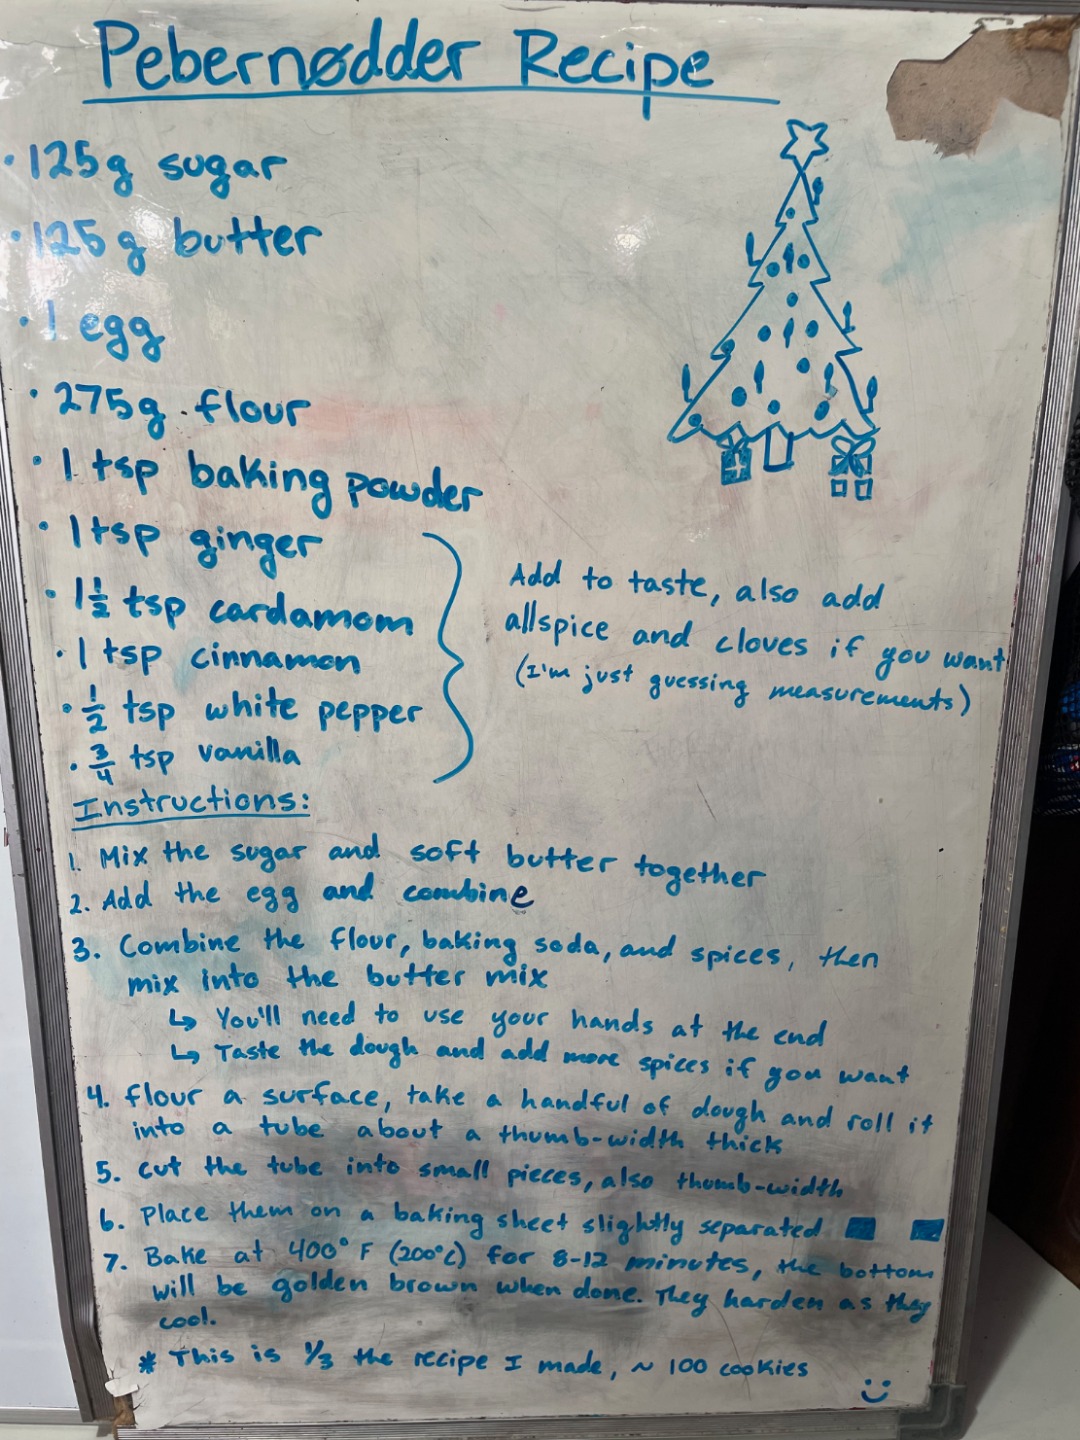 Pebernødder Recipe
· 125g sugar
· 125g butter
· 1 egg
· 275g flour
· 1 tsp baking powder
· 1 tsp ginger
· 1 1/2 tsp cardamom
· 1 tsp cinnamon
· 1/2 tsp white pepper
· 3/4 tsp vanilla
Add to taste, also add
allspice and cloves if you want
(I'm just guessing measurements)
Instructions:
1. Mix the sugar and soft butter together
2. Add the egg and combine
3. Combine the flour, baking soda, and spices, then
mix into the butter mix
↳ You'll need to use your hands at the end
↳ Taste the dough and add more spices if you want
4. flour a surface, take a handful of dough and roll it
into a tube about a thumb-width thick
5. cut the tube into small pieces, also thumb-width
6. Place them on a baking sheet slightly separated
7. Bake at 400° F (200°C) for 8-12 minutes, the bottom
will be golden brown when done. They harden as they
cool.
* This is 1/3 the recipe I made, ~ 100 cookies